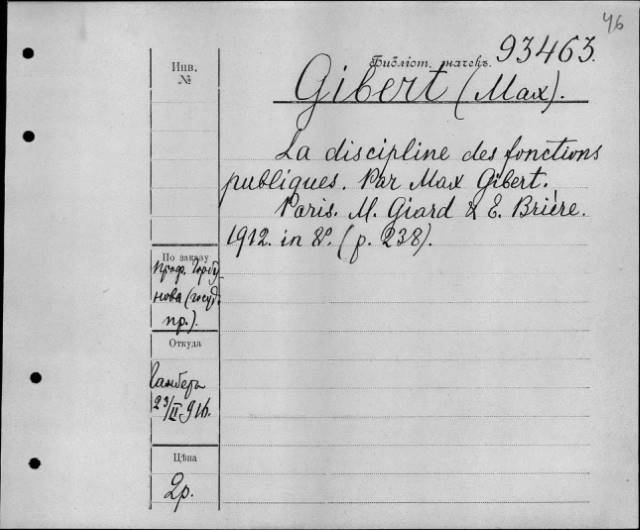 46
Библіот. значекъ. 93463.
Инв.
№
Gibert (Max).
La discipline des fonctions
publiques. Par Max Gibert.
Paris. M. Giard & E. Brière.
1912. in 8°. (p. 238).
По заказу
Проф. Горбу-
нова (госуд.
пр.).
Откуда
23/II 916.
Цѣна
2р.